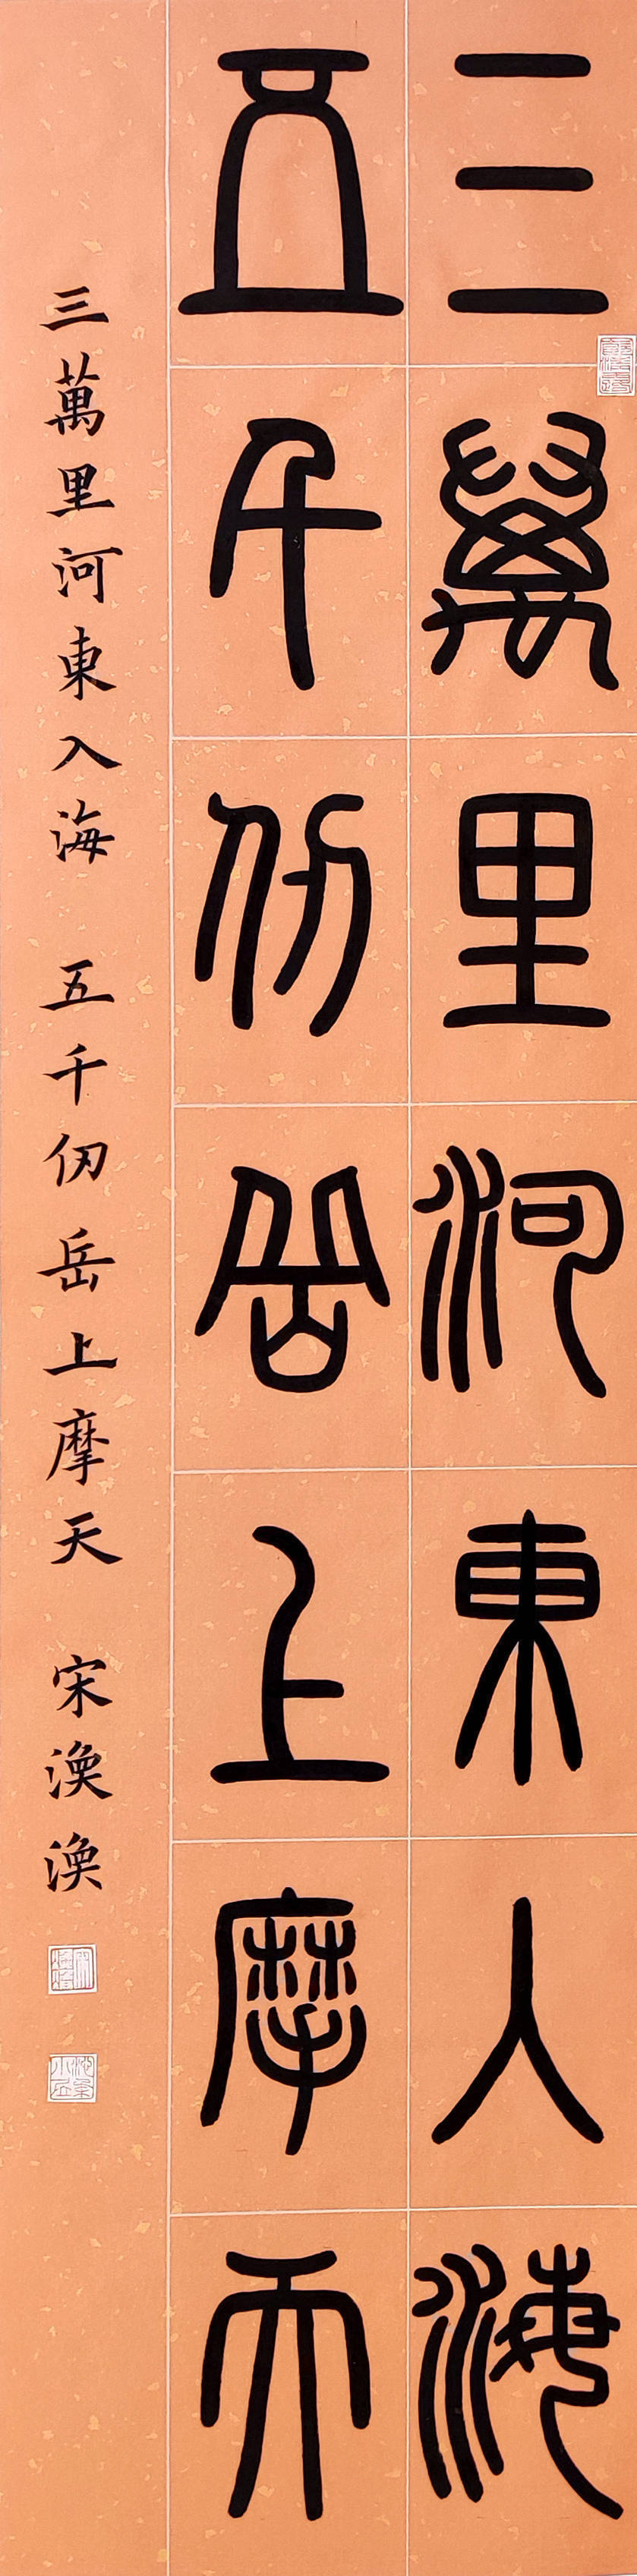 三萬里河東入海
五千仞岳上摩天
三萬里河東入海 五千仞岳上摩天 宋渙渙